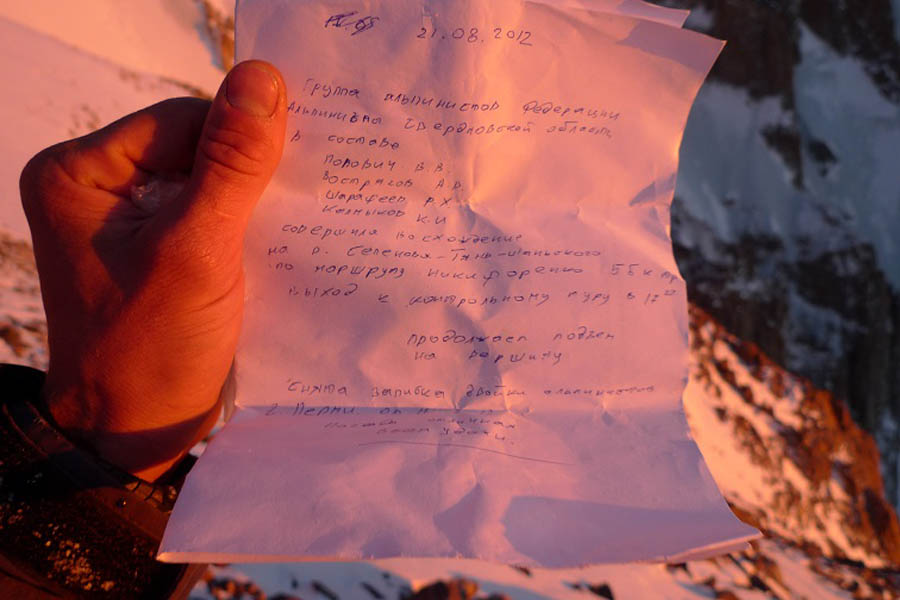 21.08.2012
Группа альпинистов Федерации
Альпинизма Свердловской области
в составе
Попович В.В.
Востряков А.В.
Шарафеев Р.Х.
Калмыков К.И
совершила восхождение
на п. Семенова-Тянь-Шаньского
по маршруту Никифоренко 5Б к.тр
выход к контрольному туру в 17
продолжаем подъем
на вершину
Снята записка двойки альпинистов
г. Перми от " "
Погода отличная
Всем удачи.